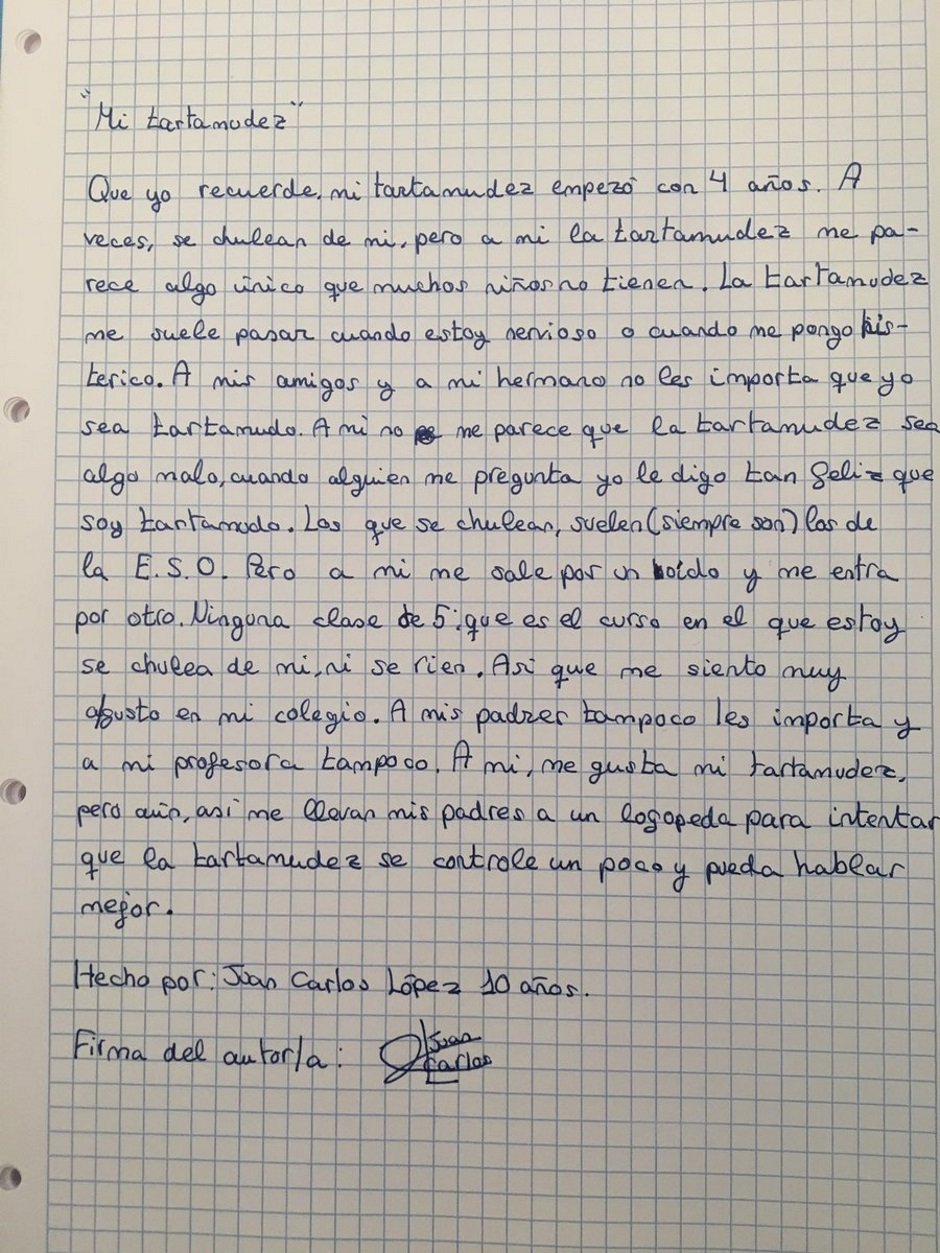 "Mi tartamudez"
Que yo recuerde, mi tartamudez empezó con 4 años. A
veces, se chulean de mi, pero a mi la tartamudez me pa-
rece algo único que muchos niños no tienen. La tartamudez
me suele pasar cuando estoy nervioso o cuando me pongo his-
terico. A mis amigos y a mi hermano no les importa que yo
sea tartamudo. A mi no me parece que la tartamudez sea
algo malo, cuando alguien me pregunta yo le digo tan feliz que
soy tartamudo. Los que se chulean, suelen (siempre son) los de
la E.S.O. Pero a mi me sale por un oido y me entra
por otro. Ninguna clase de 5: que es el curso en el que estoy
se chulea de mi, ni se rien. Asi que me siento muy
agusto en mi colegio. A mis padres tampoco les importa y
a mi profesora tampoco. A mi, me gusta mi tartamudez,
pero aún, así me llevan mis padres a un logopeda para intentar
que la tartamudez se controle un poco y pueda hablar
mejor.
Hecho por: Juan Carlos López 10 años.
Firma del autor/a: Juan
Carlos